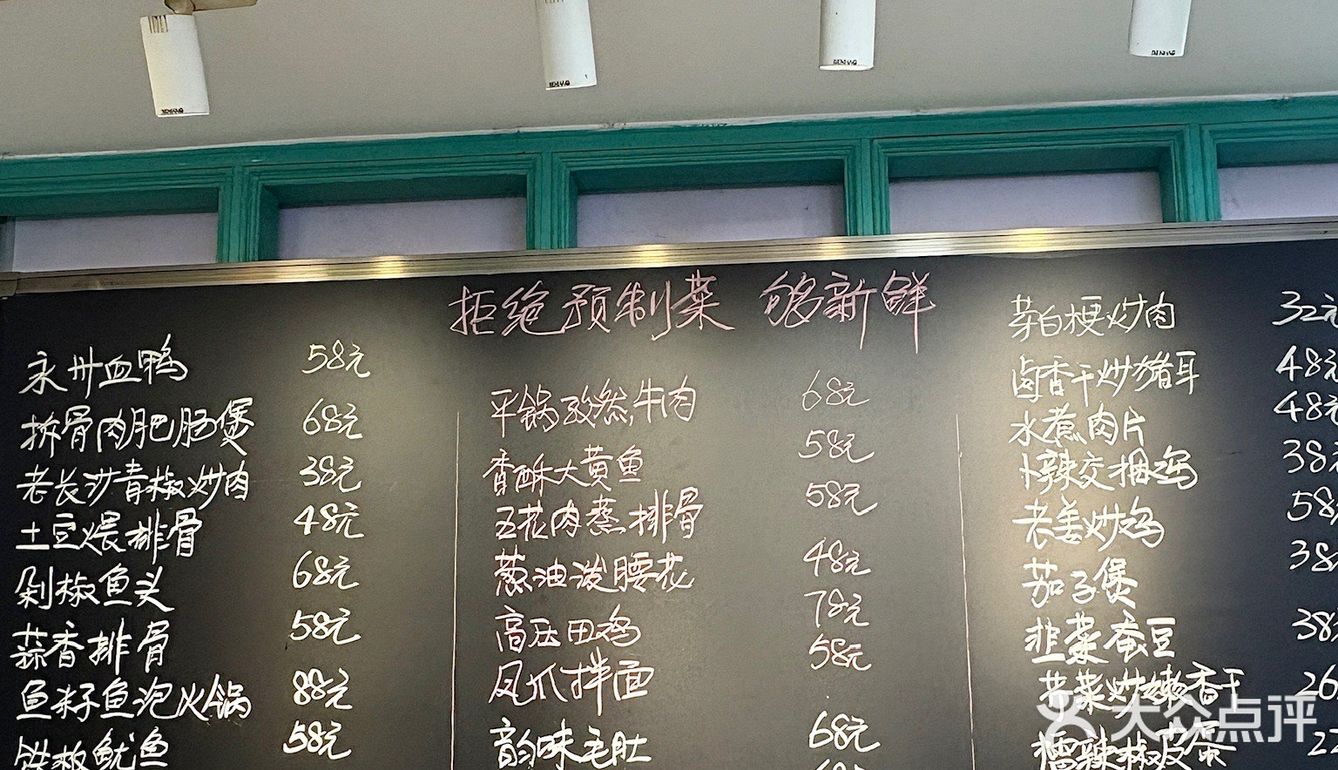 拒绝预制菜 够新鲜
永州血鸭 58元
拆骨肉肥肠煲 68元
老长沙青椒炒肉 38元
土豆煨排骨 48元
剁椒鱼头 68元
蒜香排骨 58元
鱼籽鱼泡火锅 88元
铁板鱿鱼 58元
平锅孜然牛肉 68元
香酥大黄鱼 58元
五花肉蒸排骨 58元
葱油泼腰花 48元
高压田鸡 78元
凤爪拌面 58元
韵味毛肚 68元
茅白梗炒肉 32元
卤香干炒猪耳 48元
水煮肉片 48元
卜辣交掴鸡 38
老姜炒鸡 58
茄子煲 38
韭菜蚕豆 38
炒嫩香干 26
擂辣椒皮蛋 22
大众点评